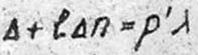 Δ + ℓΔn = p'λ